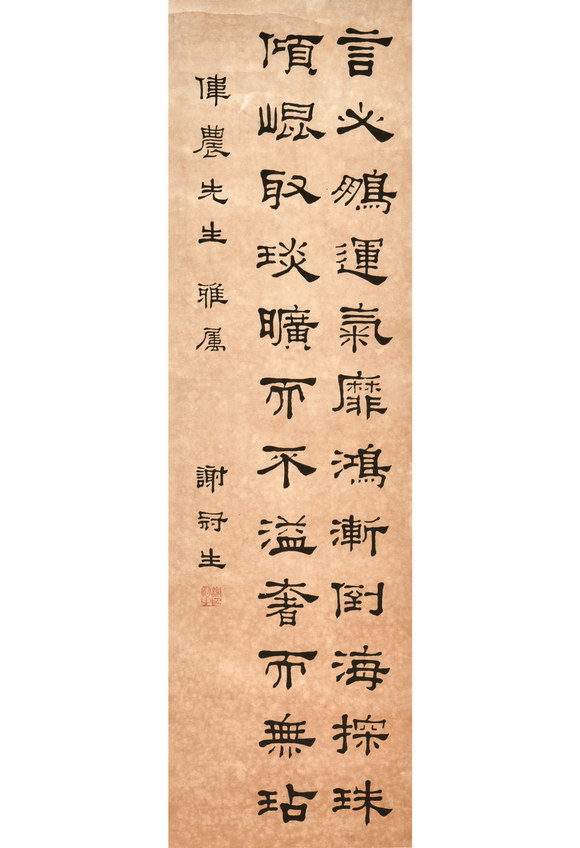 言必鵬運氣靡鴻漸倒海探珠
傾崐取琰曠而不溢奢而無玷
農先生 雅属
謝冠生